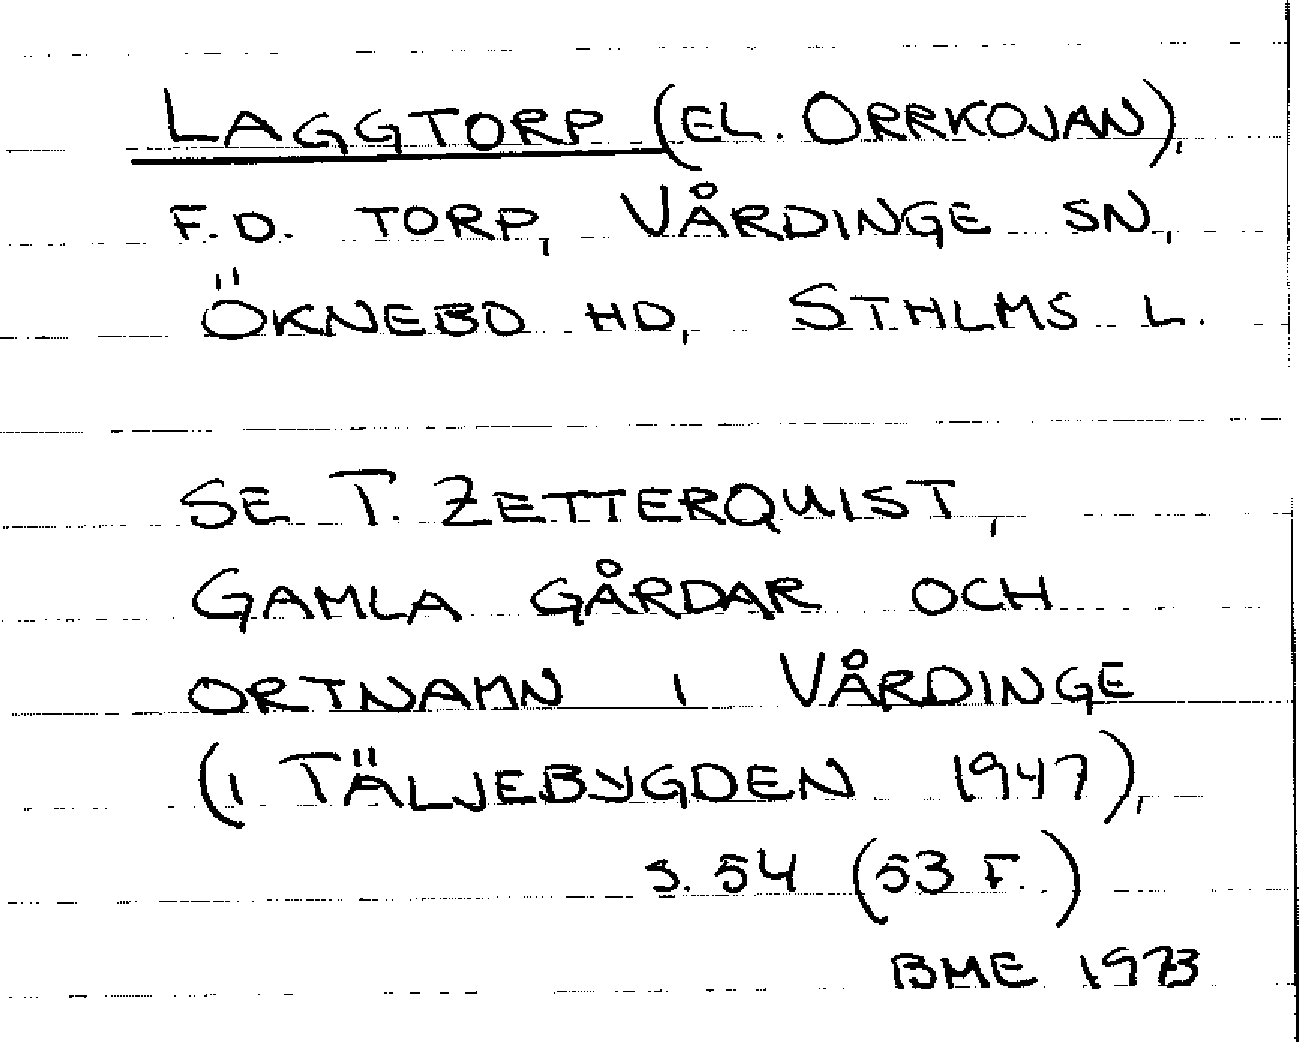 LAGGTORP (EL. ORRKOJAN),
F.D. TORP, VÅRDINGE SN,
ÖKNEBO HD, STHLMS L.
SE T. ZETTERQUIST,
GAMLA GÅRDAR OCH
ORTNAMN I VÅRDINGE
(I TÄLJEBYGDEN 1947),
S. 54 (53 F.)
BME 1973